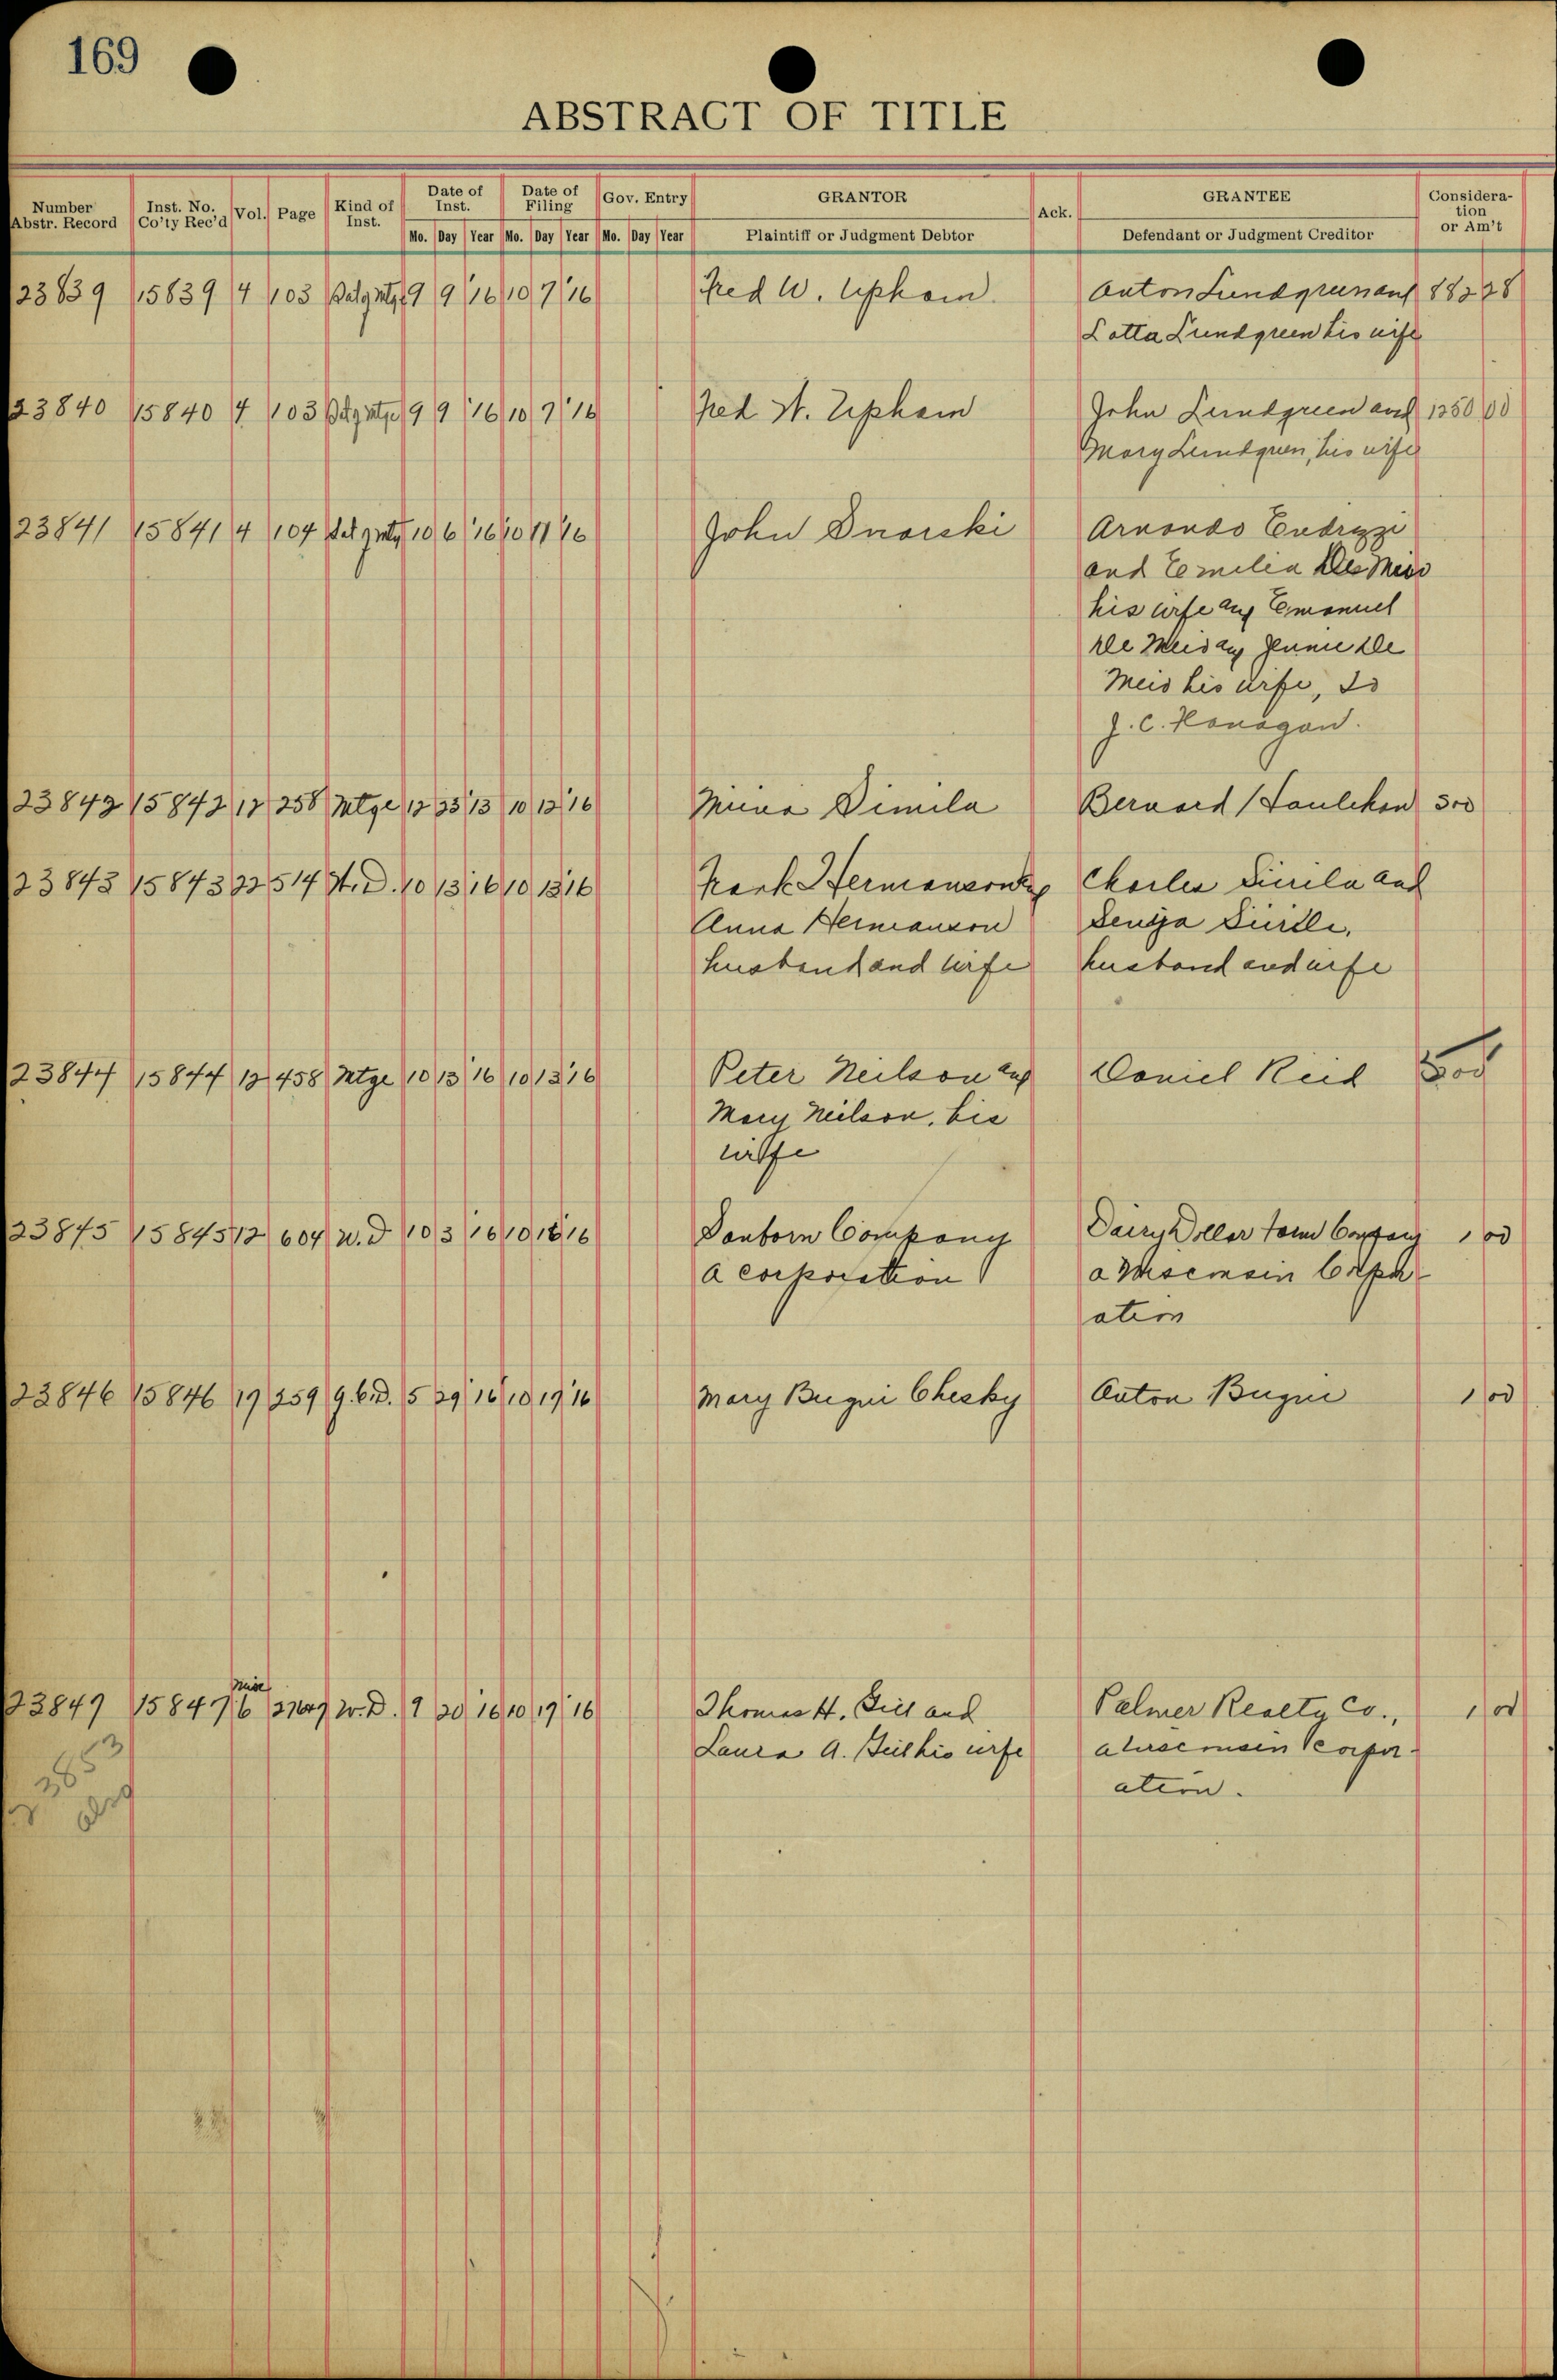 169
ABSTRACT OF TITLE
Number Abstr. Record Inst. No. Co'ty Rec'd Vol. Page Kind of Inst. Date of Inst. Date of Filing Gov. Entry GRANTOR Ack. GRANTEE Consideration or Am't
Mo. Day Year Mo. Day Year Mo. Day Year Plaintiff or Judgment Debtor Defendant or Judgment Creditor
23839 15839 4 103 9 9 16 10 7 16 Fred W. Upham Anton Lundgren and 882 28
Lotta Lundgreen his wife
23840 15840 4 103 9 9 16 10 7 16 Fred W. Upham John Lundgreen and 1250 00
Mary Lundgren, his wife
23841 15841 4 104 10 6 16 10 11 16 John Dnorski Arnondo Endrizzi
and Emilia De Meio
his wife and Emanuel
De Meid and Jennie De
Meid his wife, to
J. C. Honagan.
23842 15842 12 258 Mtge 12 23 13 10 12 16 Mina Simila Bernard 300
23843 15843 22 514 W.D. 10 13 16 10 13 16 Frank Hermanson and Charles Simila and
Anna Hermanson
husband and wife husband and wife
23844 15844 12 458 Mtge 10 13 16 10 13 16 Peter Neilson and Daniel Reid 500
Mary Neilson, his
wife
23845 15845 12 604 W.D 10 3 16 10 16 16 Sanborn Company Dairy Dollar Farm Company 1 00
a corporation a Wisconsin Corpor-
ation
23846 15846 19 259 Q.C.D. 5 29 16 10 19 16 Mary Bugni Chesky Anton Bugni 1 00
Misc
23847 15847 6 W.D. 9 20 16 10 19 16 Thomas H. Gill and Palmer Realty Co., 1 00
Laura A. Gill his wife a Wisconsin Corpor-
ation.
23853
also